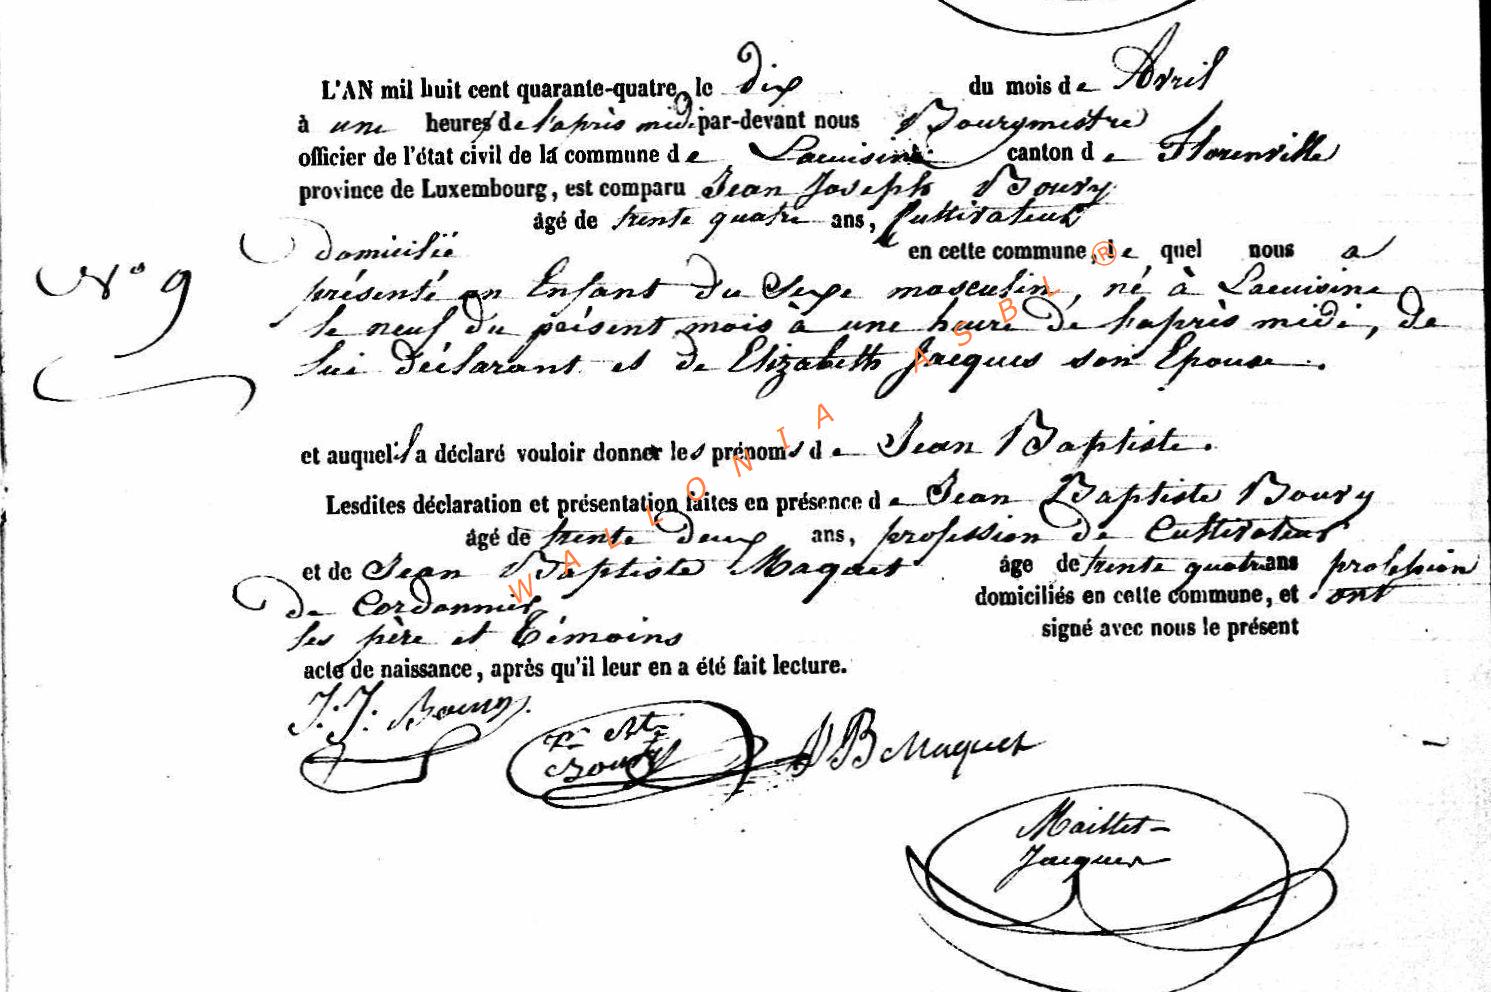 L'AN mil huit cent quarante-quatre, le dix du mois de Avril
à une heures de l'après midi par-devant nous Bourgmestre
officier de l'état civil de la commune de Lacuisine canton de Florenville
province de Luxembourg, est comparu Jean Joseph Boury
âgé de trente quatre ans, Cultivateur
domicilié en cette commune, le quel nous a
N° 9
présenté un Enfant du Sexe masculin, né à Lacuisine
le neuf du présent mois à une heure de l'après midi, de
lui déclarant et de Elizabeth Jacques son Epouse.
et auquel il a déclaré vouloir donner les prénoms de Jean Baptiste.
Lesdites déclaration et présentation faites en présence de Jean Baptiste Boury
âgé de trente deux ans, profession de Cultivateur
et de Jean Baptiste Maquet âge de trente quatre ans profession
de Cordonnier domiciliés en cette commune, et ont
les père et Témoins signé avec nous le présent
acte de naissance, après qu'il leur en a été fait lecture.
J. J. Boury.
Jn Bte Boury
J B Maquet
Maillet-
Jacques
WALLONIA ASBL ®